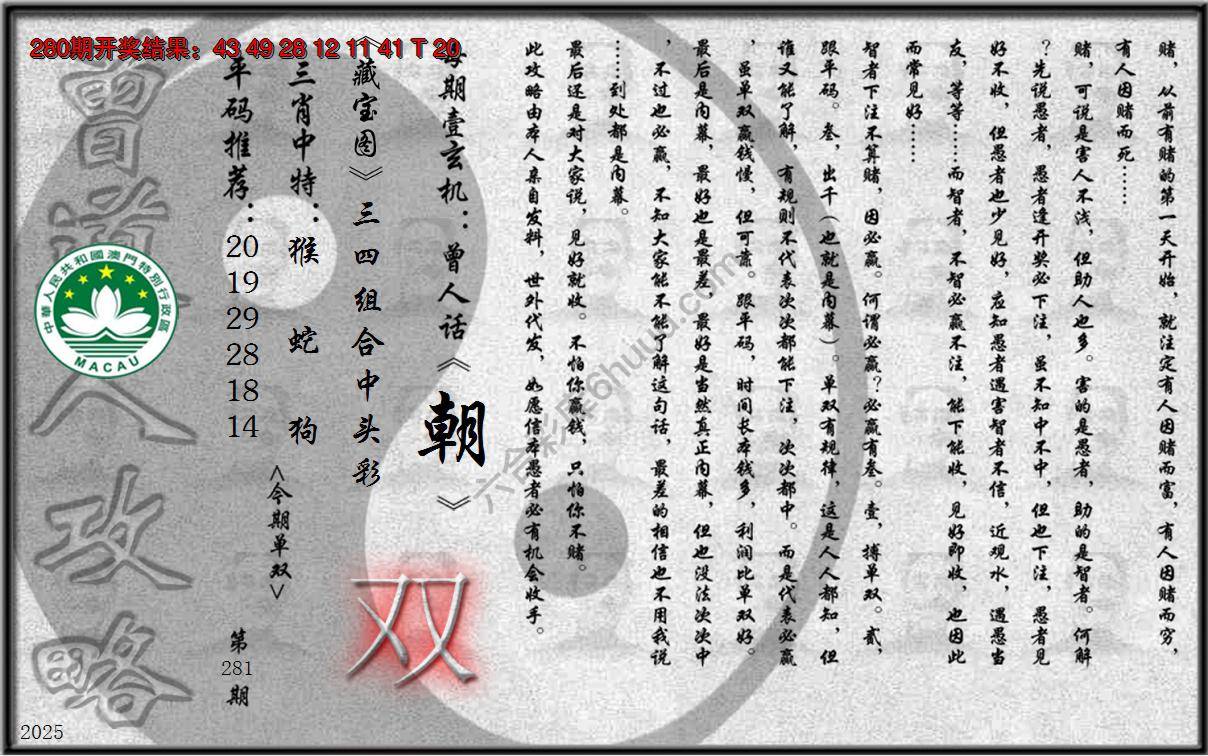 280期开奖结果：43 49 28 12 11 41 T 20
赌，从前有赌的第一天开始，就注定有人因赌而富，有人因赌而穷，
有人因赌而死……
赌，可说是害人不浅，但助人也多。害的是愚者，助的是智者。何解
？先说愚者，愚者逢开奖必下注，虽不知中不中，但也下注，愚者见
好不收，但愚者也少见好，应知愚者遇害智者不信，近观水，遇愚当
友，等等……而智者，不智必赢不注，能下能收，见好即收，也因此
而常见好……
智者下注不算赌，因必赢。何谓必赢？必赢有叁。壹，搏单双。贰，
跟平码。叁，出千（也就是内幕）。单双有规律，这是人人都知，但
谁又能了解，有规则不代表次次都能下注，次次都中。而是代表必赢
，虽单双赢钱慢，但可靠。跟平码，时间长本钱多，利润比单双好。
最后是内幕，最好也是最差，最好是当然真正内幕，但也没法次次中
，不过也必赢，不知大家能不能了解这句话，最差的相信也不用我说
……到处都是内幕。
最后还是对大家说，见好就收。不怕你赢钱，只怕你不赌。
此攻略由本人亲自发料，世外代发，如愿信本愚者必有机会收手。
每期壹玄机：曾人话《朝》
《藏宝图》三四组合中头彩
双
三肖中特：猴 蛇 狗
<今期单双>
平码推荐：20 19 29 28 18 14
第281期
曾道人攻略
中華人民共和國澳門特別行政區
MACAU
六合彩库6huuu.com
2025